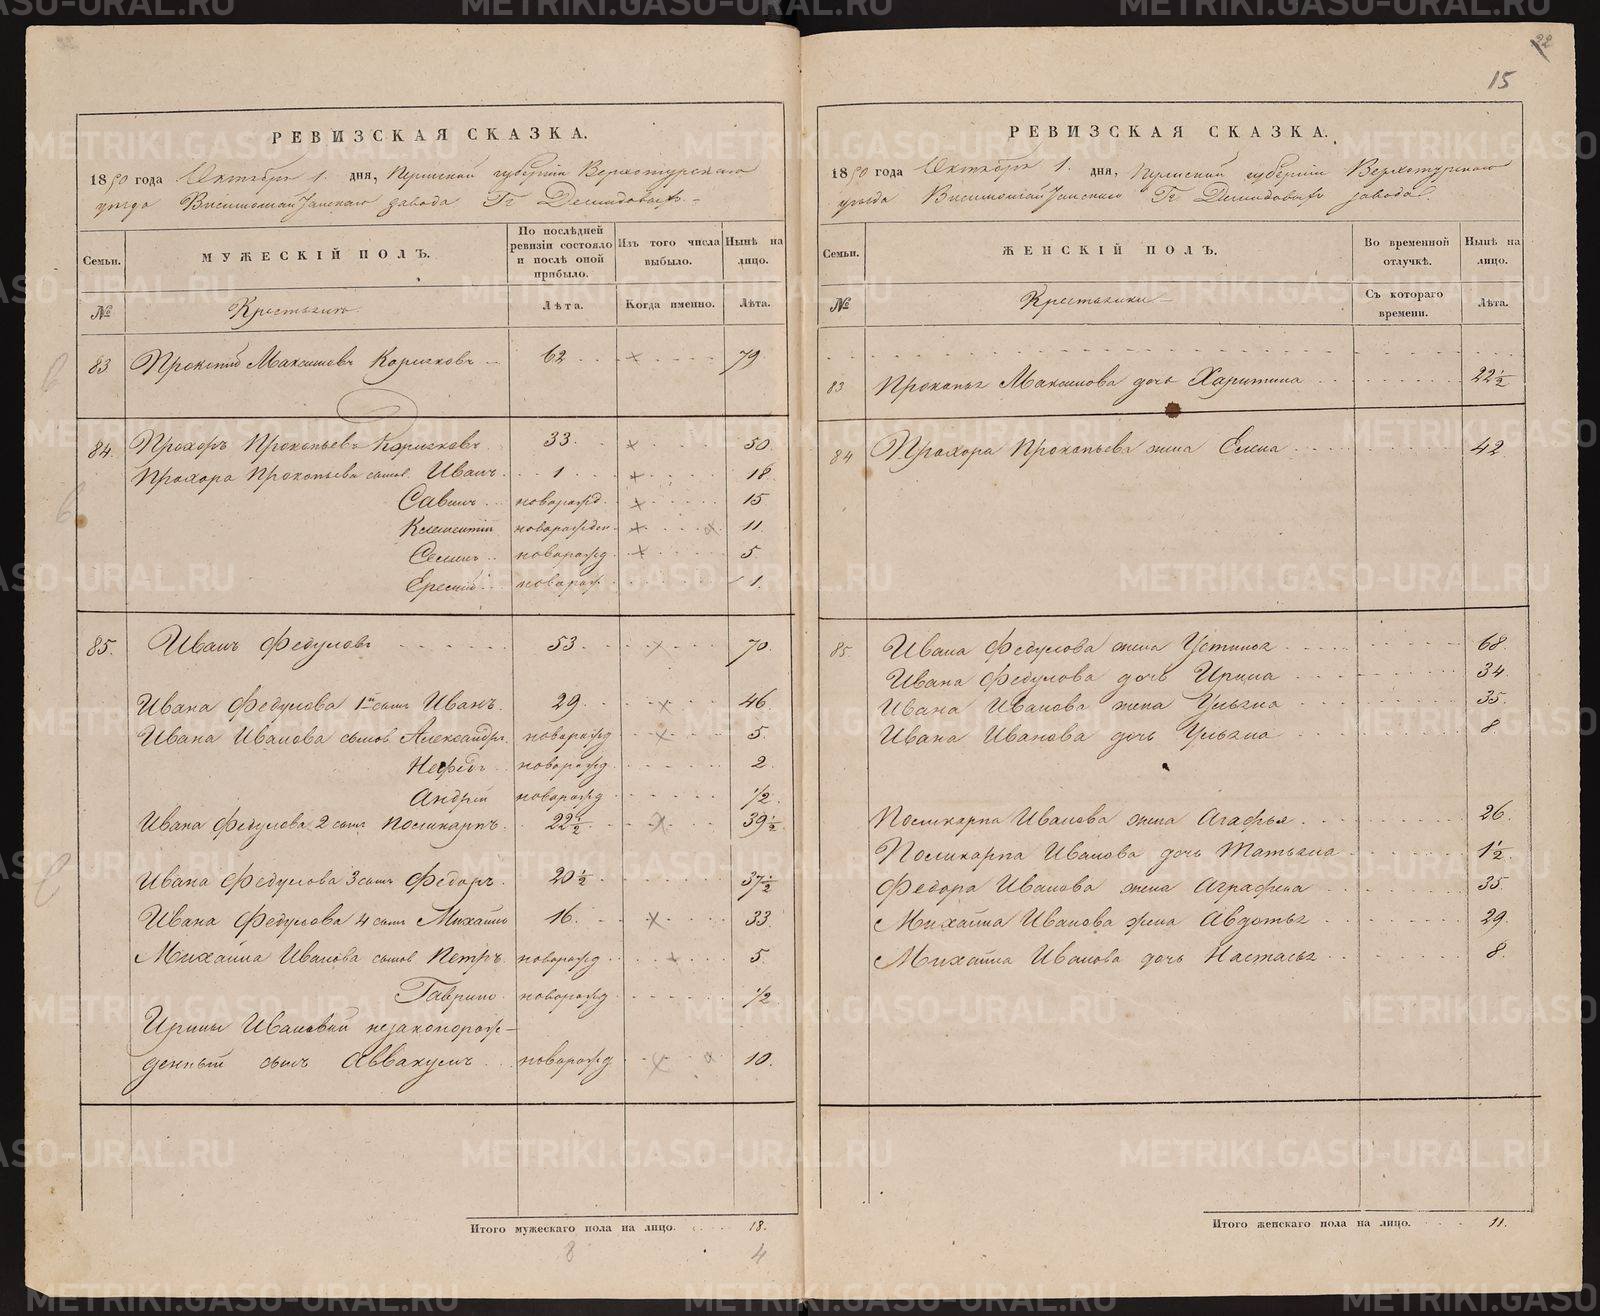 22
15
РЕВИЗСКАЯ СКАЗКА.
1850 года Октября 1. дня, Пермской губерніи Верхотурскаго
уезда Висимошайтанскаго завода Гг Демидовыхъ
Семьи.
МУЖЕСКІЙ ПОЛЪ.
По послѣдней ревизіи состояло и послѣ оной прибыло.
Изъ того числа выбыло.
Нынѣ на лицо.
№
Крестьянъ
Лѣта.
Когда именно.
Лѣта.
83 Прокопій Максимовъ Корюковъ 62 79
84. Прохоръ Прокопьевъ Корюковъ 33. 50
Прохора Прокопьева сынов Иванъ 1 18
Савинъ новорожд. 15
Климентій новорожден. 11
Семенъ новорожд 5
новорож. 1.
85. Иванъ Федуловъ 53. 70.
Ивана Федулова 1й сынъ Иванъ. 29 46
Ивана Иванова сынов Александръ новорожд 5
Нефедъ новорожд 2
Андрей новорожд 1/2.
Ивана Федулова 2 сынъ Поликарпъ. 22 1/2 39 1/2
Ивана Федулова 3 сынъ Федоръ 20 1/2 37 1/2
Ивана Федулова 4 сынъ Михайло 16. 33.
Михайла Иванова сынов Петръ новорожд 5.
Гаврило новорожд 1/2
Ирины Ивановой незаконорож-
денный сынъ Аввакумъ новорожд 10.
Итого мужескаго пола на лицо. 18.
8 4
РЕВИЗСКАЯ СКАЗКА.
1850 года Октября 1. дня, Пермской губерніи Верхотурскаго
уезда Висимошайтанскаго Гг Демидовыхъ завода.
Семьи.
ЖЕНСКІЙ ПОЛЪ.
Во временной отлучкѣ.
Нынѣ на лицо.
№
Крестьянки
Съ котораго времени.
Лѣта.
83 Прокопья Максимова дочь Харитина 22 1/2
84 Прохора Прокопьева жена Елена 42
85. Ивана Федулова жена Устинья 68.
Ивана Федулова дочь Ирина 34
Ивана Иванова жена Ульяна 35.
Ивана Иванова дочь Ульяна 8
Поликарпа Иванова жена Агафья 26.
Поликарпа Иванова дочь Татьяна 1 1/2
Федора Иванова жена Аграфена 35
Михайла Иванова жена Авдотья 29.
Михайла Иванова дочь Настасья 8.
Итого женскаго пола на лицо. 11.
METRIKI.GASO-URAL.RU